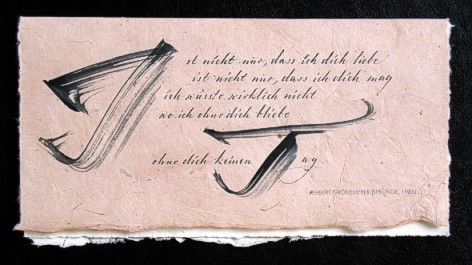 Ist nicht nur, dass ich dich liebe
ist nicht nur, dass ich dich mag
ich wüsste wirklich nicht
wo ich ohne dich bliebe
ohne dich keinen Tag.
HERBERT GRÖNEMEYER (SPRÜNGE,